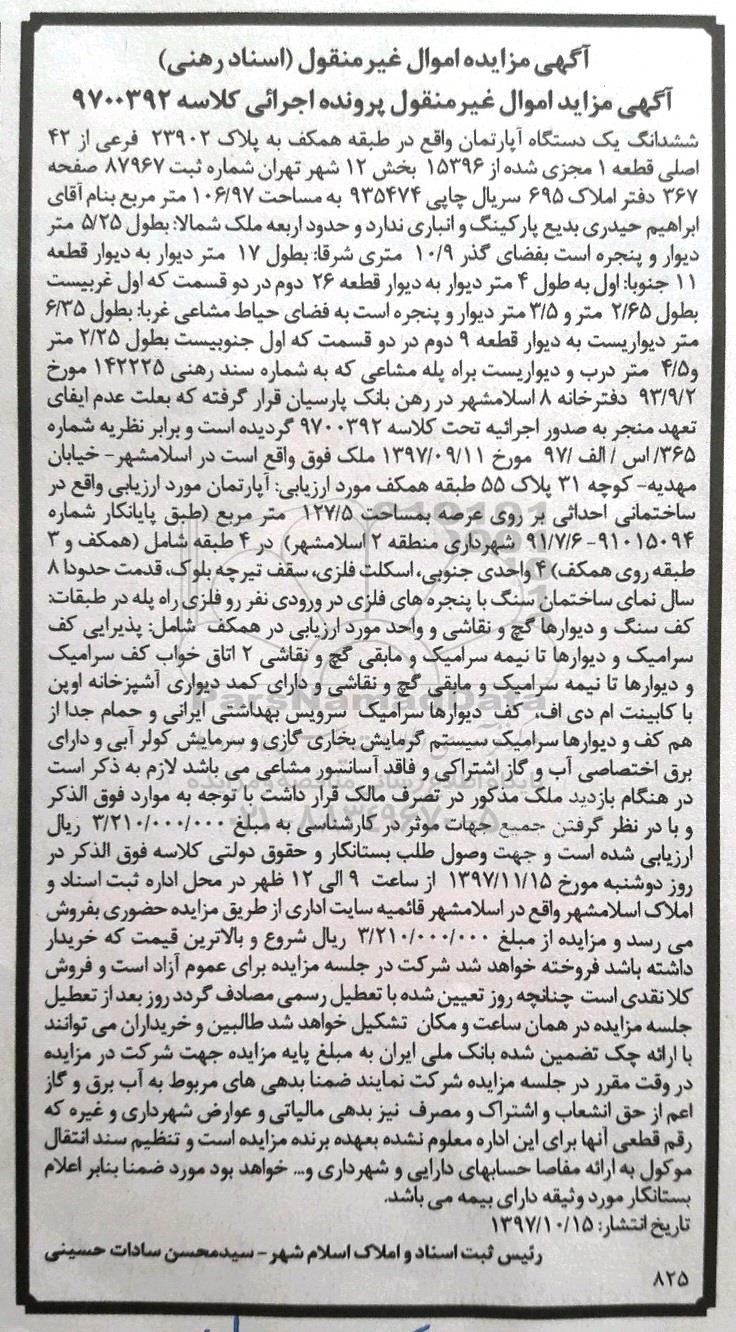 آگهی مزایده اموال غیرمنقول (اسناد رهنی)
آگهی مزاید اموال غیرمنقول پرونده اجرائی کلاسه ۹۷۰۰۳۹۲
ششدانگ یک دستگاه آپارتمان واقع در طبقه همکف به پلاک ۲۳۹۰۲ فرعی از ۴۲
اصلی قطعه ۱ مجزی شده از ۱۵۳۹۶ بخش ۱۲ شهر تهران شماره ثبت ۸۷۹۶۷ صفحه
۳۶۷ دفتر املاک ۶۹۵ سریال چاپی ۹۳۵۴۷۴ به مساحت ۱۰۶/۹۷ متر مربع بنام آقای
ابراهیم حیدری بدیع پارکینگ و انباری ندارد و حدود اربعه ملک شمالا: بطول ۵/۲۵ متر
دیوار و پنجره است بفضای گذر ۱۰/۹ متری شرقا: بطول ۱۷ متر دیوار به دیوار قطعه
۱۱ جنوبا: اول به طول ۴ متر دیوار به دیوار قطعه ۲۶ دوم در دو قسمت که اول غربیست
بطول ۲/۶۵ متر و ۳/۵ متر دیوار و پنجره است به فضای حیاط مشاعی غربا: بطول ۶/۳۵
متر دیواریست به دیوار قطعه ۹ دوم در دو قسمت که اول جنوبیست بطول ۲/۲۵ متر
و۴/۵ متر درب و دیواریست براه پله مشاعی که به شماره سند رهنی ۱۴۲۲۲۵ مورخ
۹۳/۹/۲ دفترخانه ۸ اسلامشهر در رهن بانک پارسیان قرار گرفته که بعلت عدم ایفای
تعهد منجر به صدور اجرائیه تحت کلاسه ۹۷۰۰۳۹۲ گردیده است و برابر نظریه شماره
۳۶۵/ اس / الف /۹۷ مورخ ۱۳۹۷/۰۹/۱۱ ملک فوق واقع است در اسلامشهر- خیابان
مهدیه- کوچه ۳۱ پلاک ۵۵ طبقه همکف مورد ارزیابی: آپارتمان مورد ارزیابی واقع در
ساختمانی احداثی بر روی عرصه بمساحت ۱۲۷/۵ متر مربع (طبق پایانکار شماره
۹۱۰۱۵۰۹۴ -۹۱/۷/۶ شهرداری منطقه ۲ اسلامشهر) در ۴ طبقه شامل (همکف و ۳
طبقه روی همکف) ۴ واحدی جنوبی، اسکلت فلزی، سقف تیرچه بلوک، قدمت حدودا ۸
سال نمای ساختمان سنگ با پنجره های فلزی در ورودی نفر رو فلزی راه پله در طبقات:
کف سنگ و دیوارها گچ و نقاشی و واحد مورد ارزیابی در همکف شامل: پذیرایی کف
سرامیک و دیوارها تا نیمه سرامیک و مابقی گچ و نقاشی ۲ اتاق خواب کف سرامیک
و دیوارها تا نیمه سرامیک و مابقی گچ و نقاشی و دارای کمد دیواری آشپزخانه اوپن
با کابینت ام دی اف، کف دیوارها سرامیک سرویس بهداشتی ایرانی و حمام جدا از
هم کف و دیوارها سرامیک سیستم گرمایش بخاری گازی و سرمایش کولر آبی و دارای
برق اختصاصی آب و گاز اشتراکی و فاقد آسانسور مشاعی می باشد لازم به ذکر است
در هنگام بازدید ملک مذکور در تصرف مالک قرار داشت با توجه به موارد فوق الذکر
و با در نظر گرفتن جمیع جهات موثر در کارشناسی به مبلغ ۳/۲۱۰/۰۰۰/۰۰۰ ریال
ارزیابی شده است و جهت وصول طلب بستانکار و حقوق دولتی کلاسه فوق الذکر در
روز دوشنبه مورخ ۱۳۹۷/۱۱/۱۵ از ساعت ۹ الی ۱۲ ظهر در محل اداره ثبت اسناد و
املاک اسلامشهر واقع در اسلامشهر قائمیه سایت اداری از طریق مزایده حضوری بفروش
می رسد و مزایده از مبلغ ۳/۲۱۰/۰۰۰/۰۰۰ ریال شروع و بالاترین قیمت که خریدار
داشته باشد فروخته خواهد شد شرکت در جلسه مزایده برای عموم آزاد است و فروش
کلا نقدی است چنانچه روز تعیین شده با تعطیل رسمی مصادف گردد روز بعد از تعطیل
جلسه مزایده در همان ساعت و مکان تشکیل خواهد شد طالبین و خریداران می توانند
با ارائه چک تضمین شده بانک ملی ایران به مبلغ پایه مزایده جهت شرکت در مزایده
در وقت مقرر در جلسه مزایده شرکت نمایند ضمنا بدهی های مربوط به آب برق و گاز
اعم از حق انشعاب و اشتراک و مصرف نیز بدهی مالیاتی و عوارض شهرداری و غیره که
رقم قطعی آنها برای این اداره معلوم نشده بعهده برنده مزایده است و تنظیم سند انتقال
موکول به ارائه مفاصا حسابهای دارایی و شهرداری و... خواهد بود مورد ضمنا بنابر اعلام
بستانکار مورد وثیقه دارای بیمه می باشد.
تاریخ انتشار: ۱۳۹۷/۱۰/۱۵
رئیس ثبت اسناد و املاک اسلام شهر - سیدمحسن سادات حسینی
۸۲۵
ParsNamadData